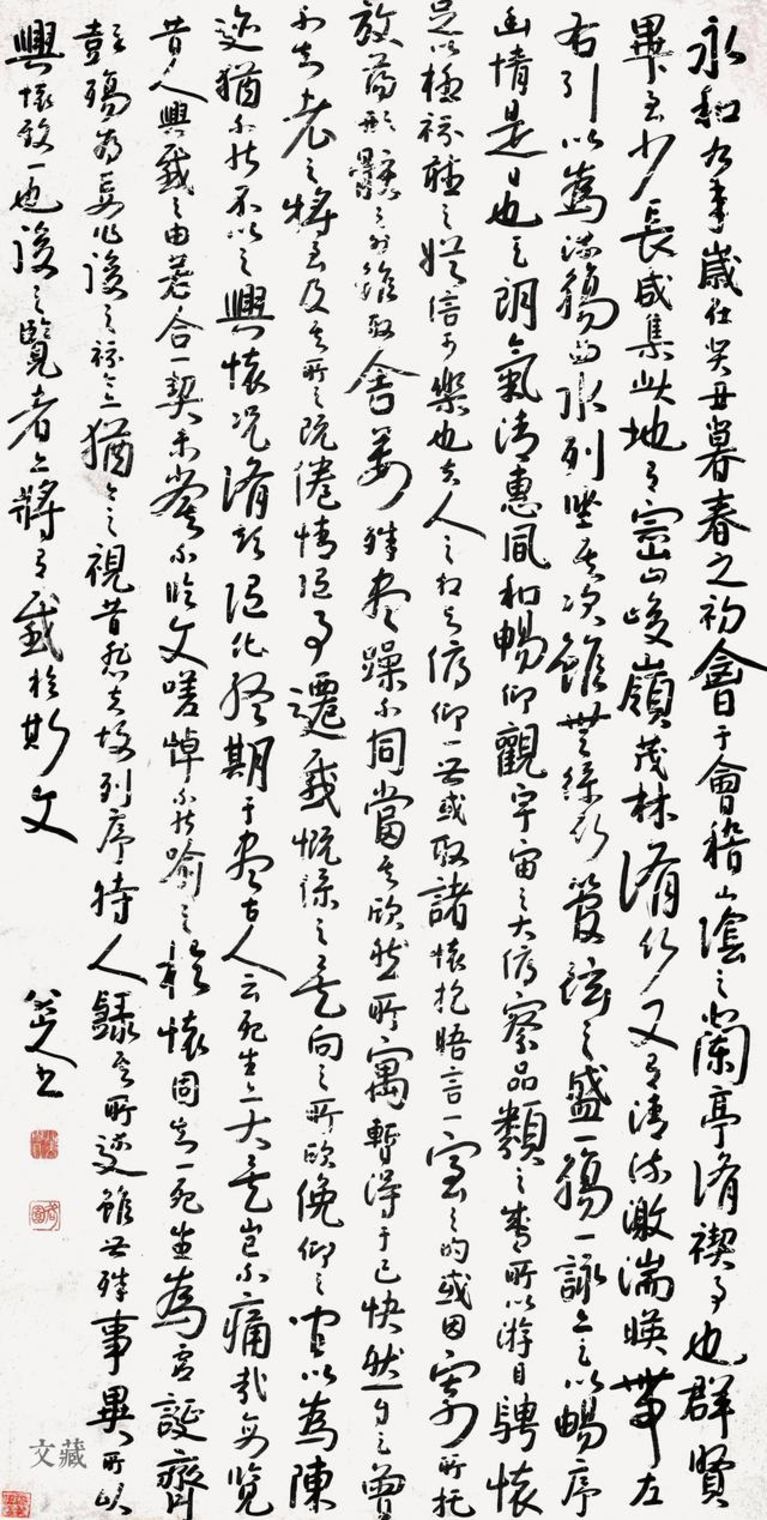 永和九年歲在癸丑暮春之初會于會稽山陰之蘭亭脩禊事也群賢
畢至少長咸集此地有崇山峻嶺茂林脩竹又有清流激湍暎帶左
右引以為流觴曲水列坐其次雖無絲竹管弦之盛一觴一詠亦足以暢序
幽情是日也天朗氣清惠風和暢仰觀宇宙之大俯察品類之盛所以游目騁懷
足以極視聽之娛信可樂也夫人之相與俯仰一世或取諸懷抱晤言一室之內或因寄所托
放蕩形骸之外雖取舍萬殊靜躁不同當其欣然所寓暫得于己快然自足曾
不知老之將至及其所之既倦情隨事遷感慨係之矣向之所欣俛仰之間以為陳
迹猶不能不以之興懷況脩短隨化終期于盡古人云死生亦大矣豈不痛哉每覽
昔人興感之由若合一契未嘗不臨文嗟悼不能喻之於懷固知一死生為虛誕齊
彭殤為妄作後之視今亦猶今之視昔悲夫故列序時人錄其所述雖世殊事異所以
興懷致一也後之覽者亦將有感於斯文
八大山人書
文藏